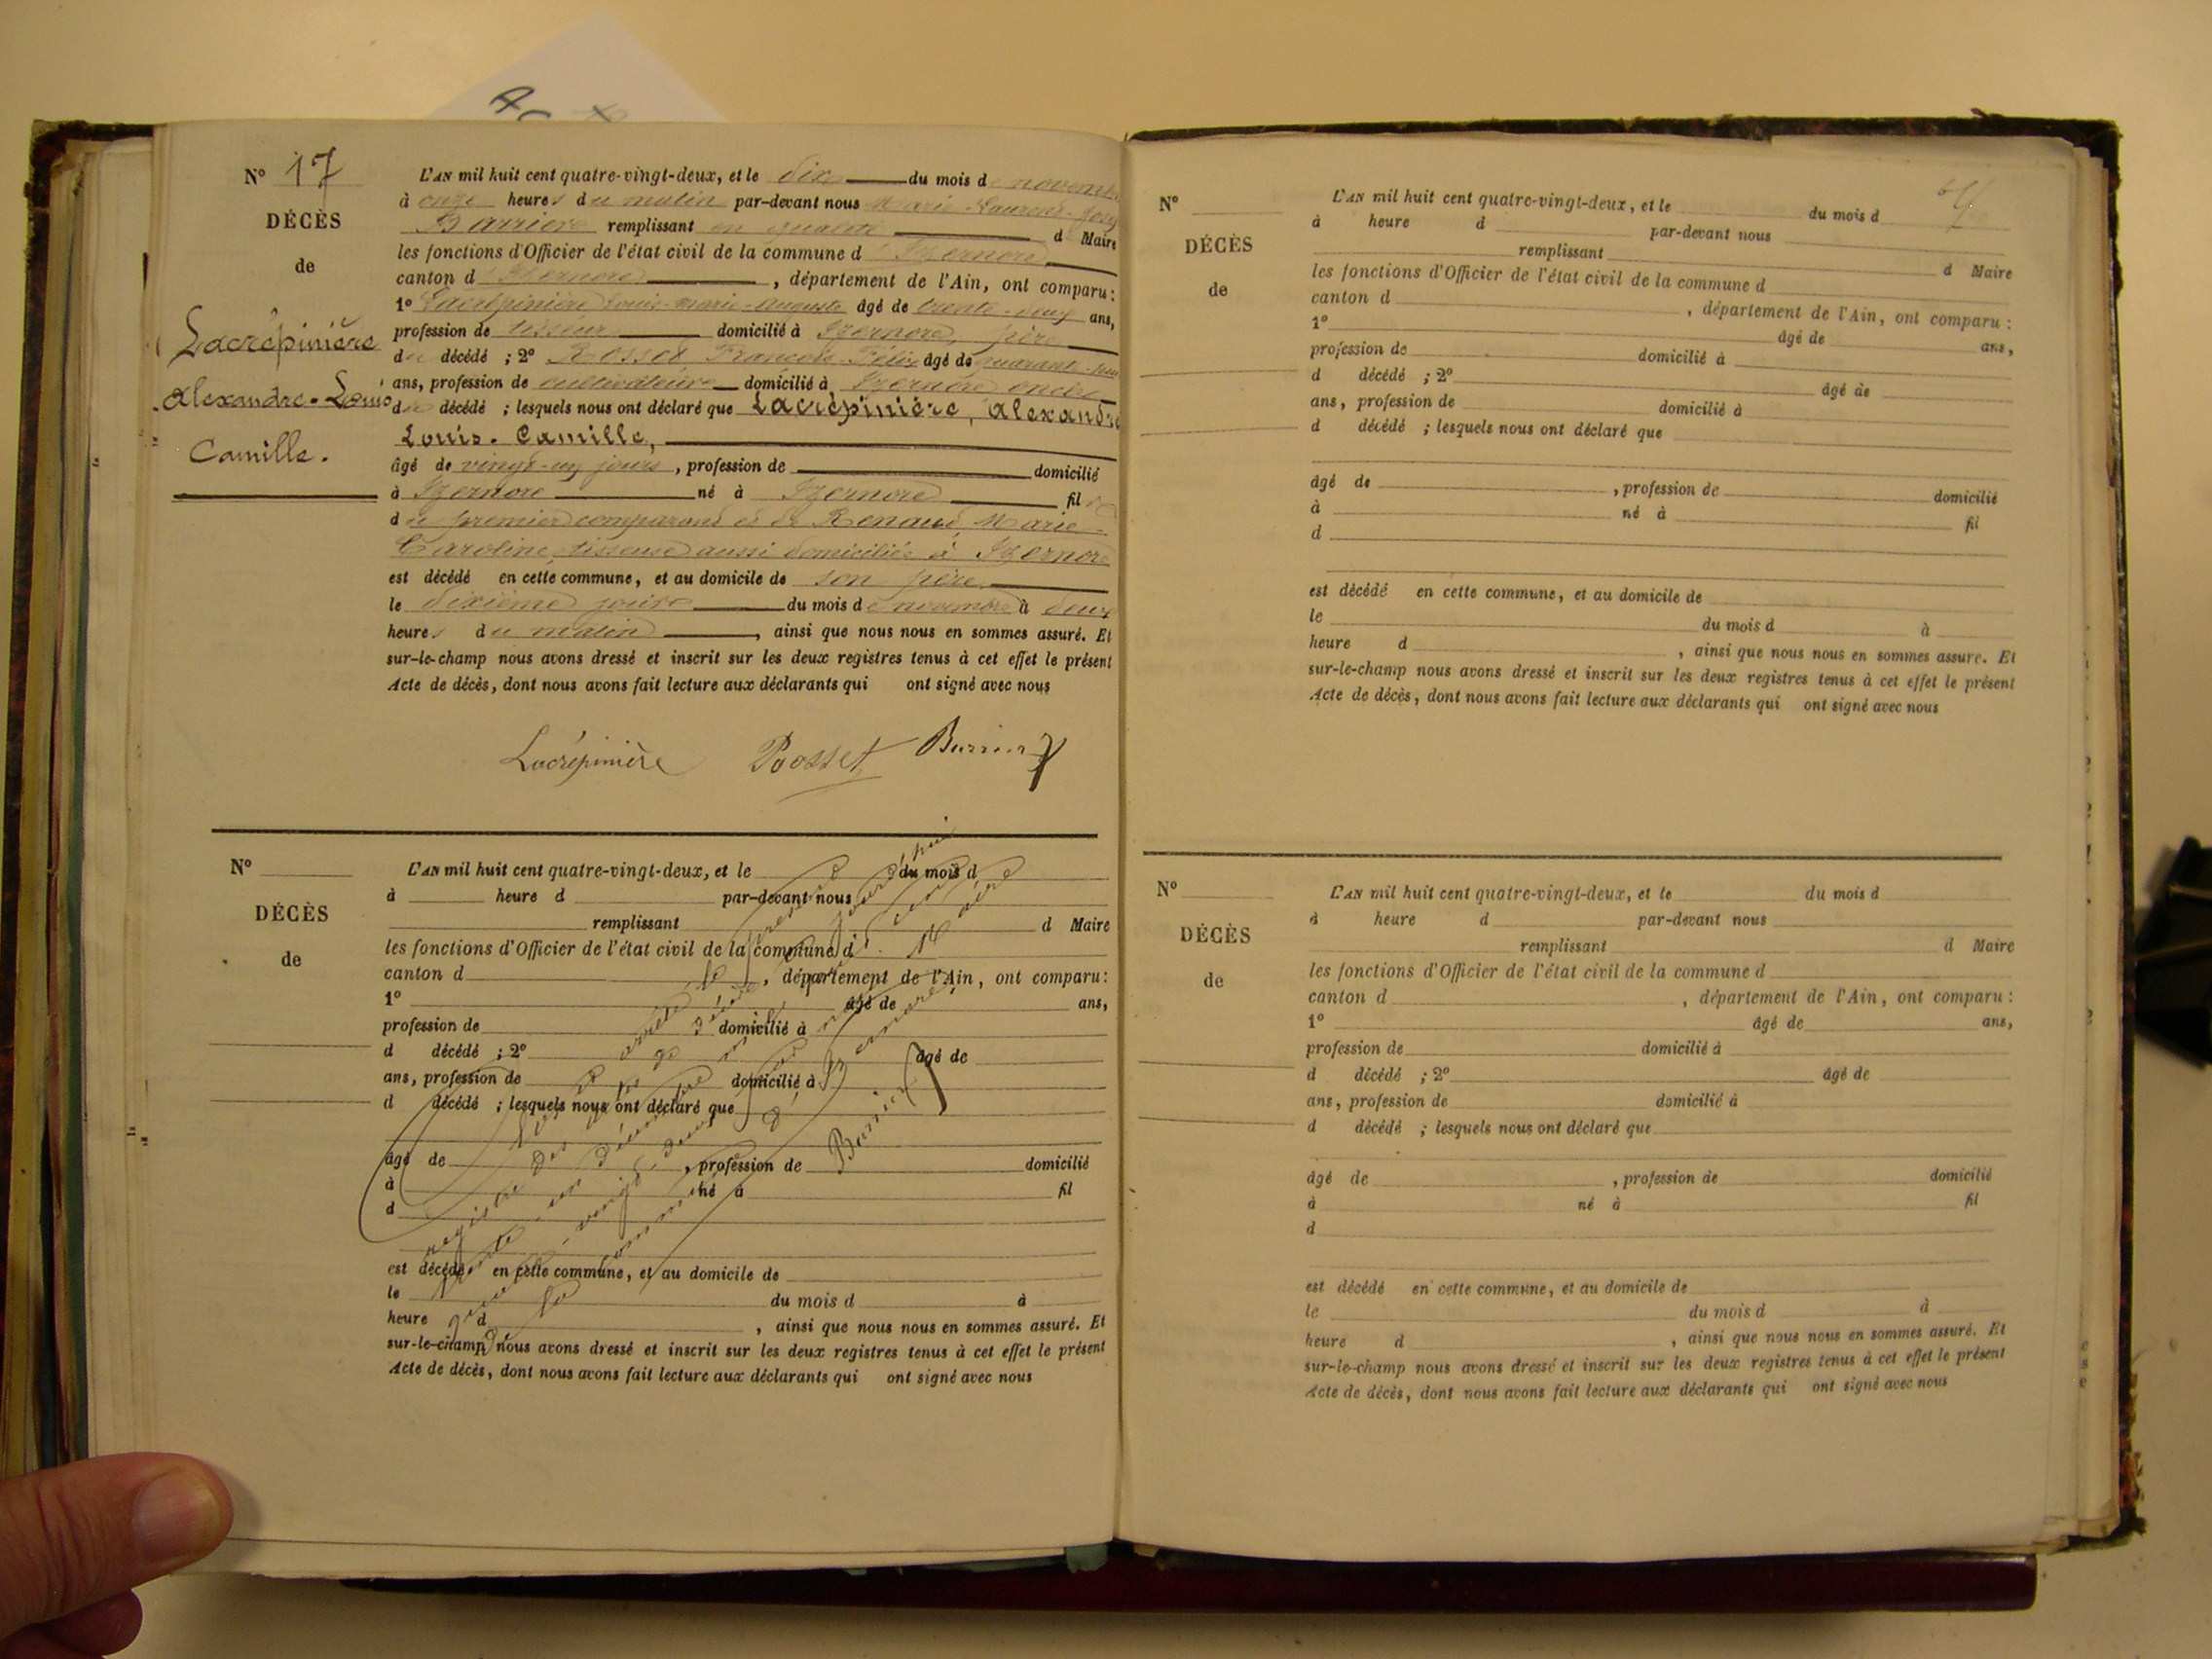 Nº 17
DÉCÈS
de
Lacrépinière
Alexandre-Louis
Camille.
L'AN mil huit cent quatre-vingt-deux, et le dix du mois de novembre
à onze heures du matin par-devant nous Marie-Laurent
Barrier remplissant en qualité d Maire
les fonctions d'Officier de l'état civil de la commune d'Izernore
canton d'Izernore, département de l'Ain, ont comparu :
1º Lacrépinière Louis-Marie-Auguste âgé de trente-deux ans,
profession de tisseur domicilié à Izernore, père
du décédé ; 2º Rosset François-Félix âgé de quarante
ans, profession de cultivateur domicilié à Izernore oncle
du décédé ; lesquels nous ont déclaré que Lacrépinière, Alexandre
Louis-Camille,
âgé de vingt-un jours, profession de domicilié
à Izernore né à Izernore fils
du premier comparant et de Renaud, Marie-
Caroline, tisseuse aussi domiciliée à Izernore
est décédé en cette commune, et au domicile de son père
le dixième jour du mois de novembre à deux
heures du matin, ainsi que nous nous en sommes assuré. Et
sur-le-champ nous avons dressé et inscrit sur les deux registres tenus à cet effet le présent
Acte de décès, dont nous avons fait lecture aux déclarants qui ont signé avec nous
Lacrépinière Rosset Barrier
Nº
DÉCÈS
de
L'AN mil huit cent quatre-vingt-deux, et le du mois d
à heure d par-devant nous
remplissant d Maire
les fonctions d'Officier de l'état civil de la commune d
canton d , département de l'Ain, ont comparu :
1º âgé de ans,
profession de domicilié à
d décédé ; 2º âgé de
ans, profession de domicilié à
d décédé ; lesquels nous ont déclaré que
âgé de , profession de domicilié
à né à fil
d
est décédé en cette commune, et au domicile de
le du mois d à
heure d , ainsi que nous nous en sommes assuré. Et
sur-le-champ nous avons dressé et inscrit sur les deux registres tenus à cet effet le présent
Acte de décès, dont nous avons fait lecture aux déclarants qui ont signé avec nous
Barrier
Nº
DÉCÈS
de
L'AN mil huit cent quatre-vingt-deux, et le du mois d
à heure d par-devant nous
remplissant d Maire
les fonctions d'Officier de l'état civil de la commune d
canton d , département de l'Ain, ont comparu :
1º âgé de ans,
profession de domicilié à
d décédé ; 2º âgé de
ans, profession de domicilié à
d décédé ; lesquels nous ont déclaré que
âgé de , profession de domicilié
à né à fil
d
est décédé en cette commune, et au domicile de
le du mois d à
heure d , ainsi que nous nous en sommes assuré. Et
sur-le-champ nous avons dressé et inscrit sur les deux registres tenus à cet effet le présent
Acte de décès, dont nous avons fait lecture aux déclarants qui ont signé avec nous
Nº
DÉCÈS
de
L'AN mil huit cent quatre-vingt-deux, et le du mois d
à heure d par-devant nous
remplissant d Maire
les fonctions d'Officier de l'état civil de la commune d
canton d , département de l'Ain, ont comparu :
1º âgé de ans,
profession de domicilié à
d décédé ; 2º âgé de
ans, profession de domicilié à
d décédé ; lesquels nous ont déclaré que
âgé de , profession de domicilié
à né à fil
d
est décédé en cette commune, et au domicile de
le du mois d à
heure d , ainsi que nous nous en sommes assuré. Et
sur-le-champ nous avons dressé et inscrit sur les deux registres tenus à cet effet le présent
Acte de décès, dont nous avons fait lecture aux déclarants qui ont signé avec nous